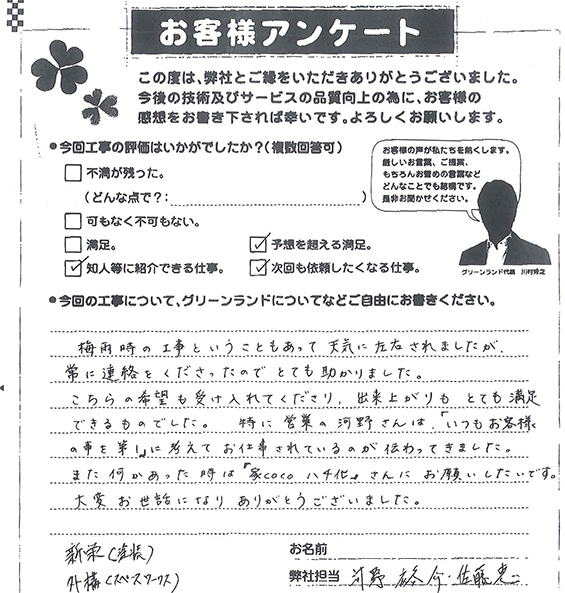 お客様アンケート
この度は、弊社とご縁をいただきありがとうございました。
今後の技術及びサービスの品質向上の為に、お客様の
感想をお書き下されば幸いです。よろしくお願いします。
●今回工事の評価はいかがでしたか?(複数回答可)
不満が残った。
(どんな点で?: )
可もなく不可もない。
満足。
予想を超える満足。
知人等に紹介できる仕事。
次回も依頼したくなる仕事。
お客様の声が私たちを動くします。
厳しいお言葉、ご提案、
もちろんお誉めの言葉など
どんなことでも結構です。
是非お聞かせください。
グリーンランド代表 川村
●今回の工事について、グリーンランドについてなどご自由にお書きください。
梅雨時の工事ということもあって天気に左右されましたが、
常に連絡をくださったのでとても助かりました。
こちらの希望も受け入れてくださり、出来上がりもとても満足
できるものでした。 特に営業の河野さんは、「いつもお客様
の事を第1」に考えてお仕事されているのが伝わってきました。
また何かあった時は『家coco ハチ化』さんにお願いしたいです。
大変お世話になりありがとうございました。
新栄(塗装)
外構(スペースワークス)
お名前
弊社担当 河野 ・佐藤